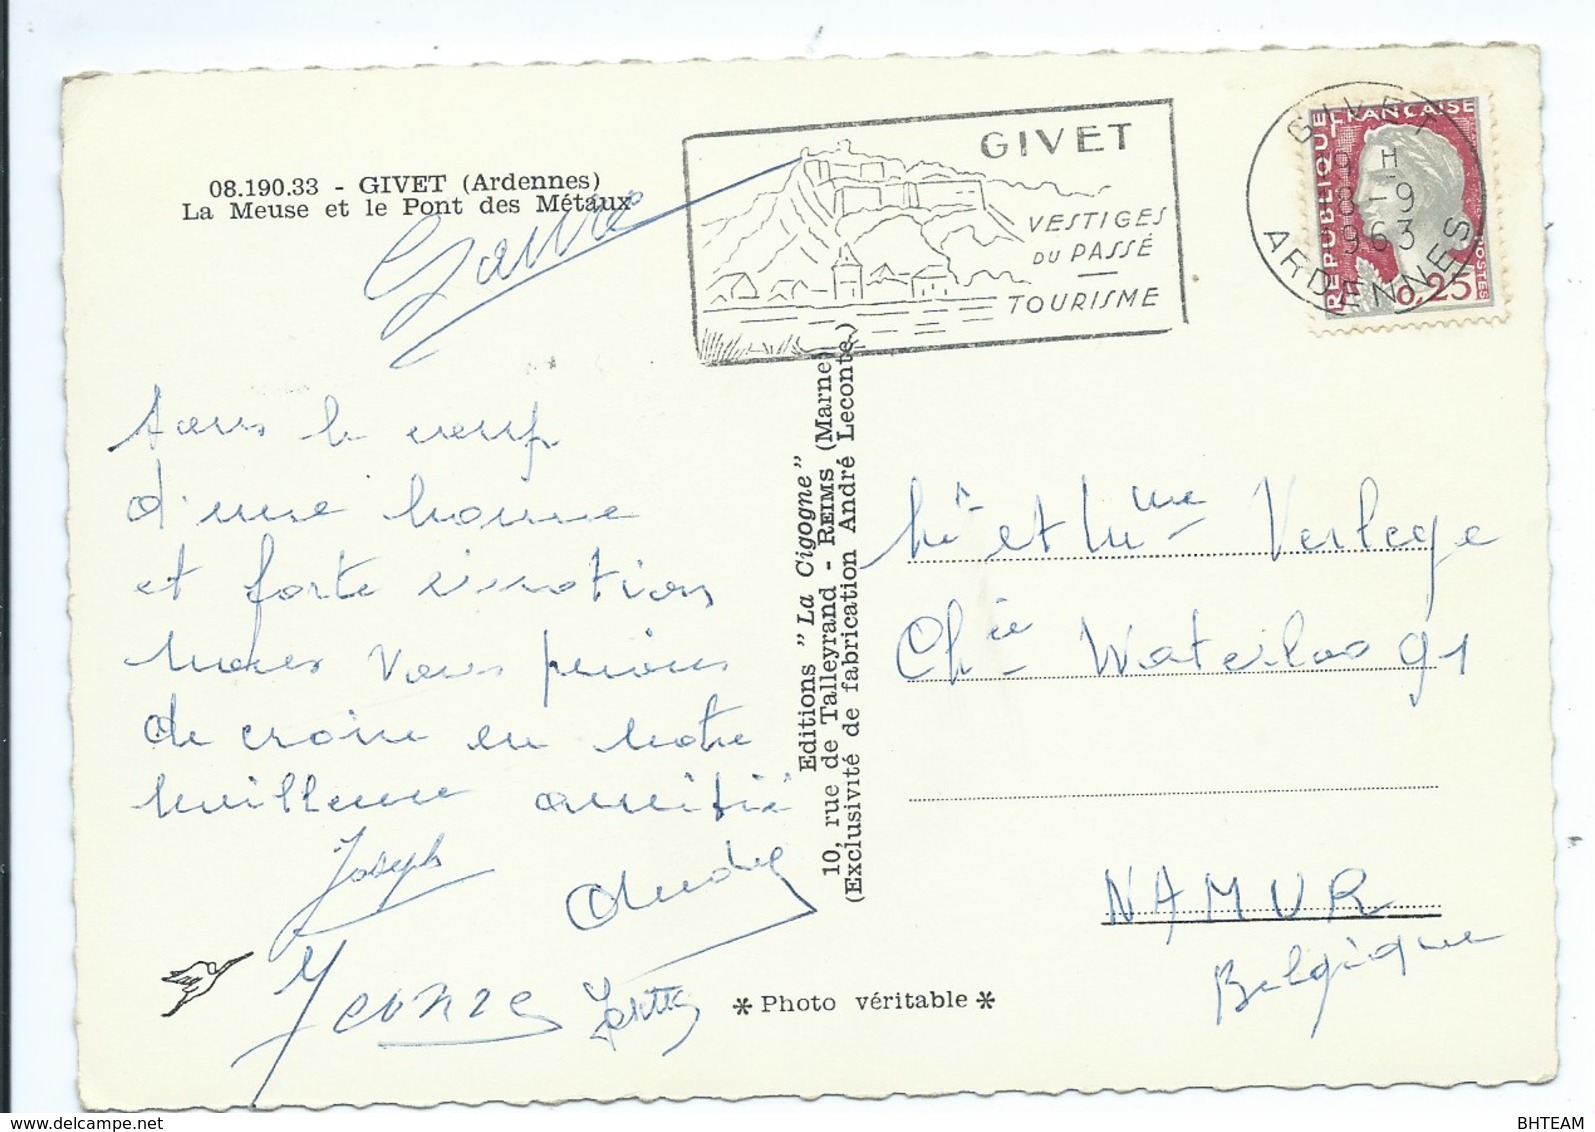 08.190.33 - GIVET (Ardennes)
La Meuse et le Pont des Métaux
GIVET
VESTIGES
DU PASSÉ
TOURISME
GIVET
9 H
8 - 9
1963
ARDENNES
REPUBLIQUE FRANÇAISE
POSTES
0,25
d'une bonne
et forte émotion
nous vous prions
de croire en notre
meilleure amitié
Joseph
André
Yvonne
Editions "La Cigogne"
10, rue de Talleyrand - REIMS (Marne)
(Exclusivité de fabrication André Leconte.)
Mr et Mme Verlege
Chée Waterloo 91
NAMUR
Belgique
* Photo véritable *
BHTEAM